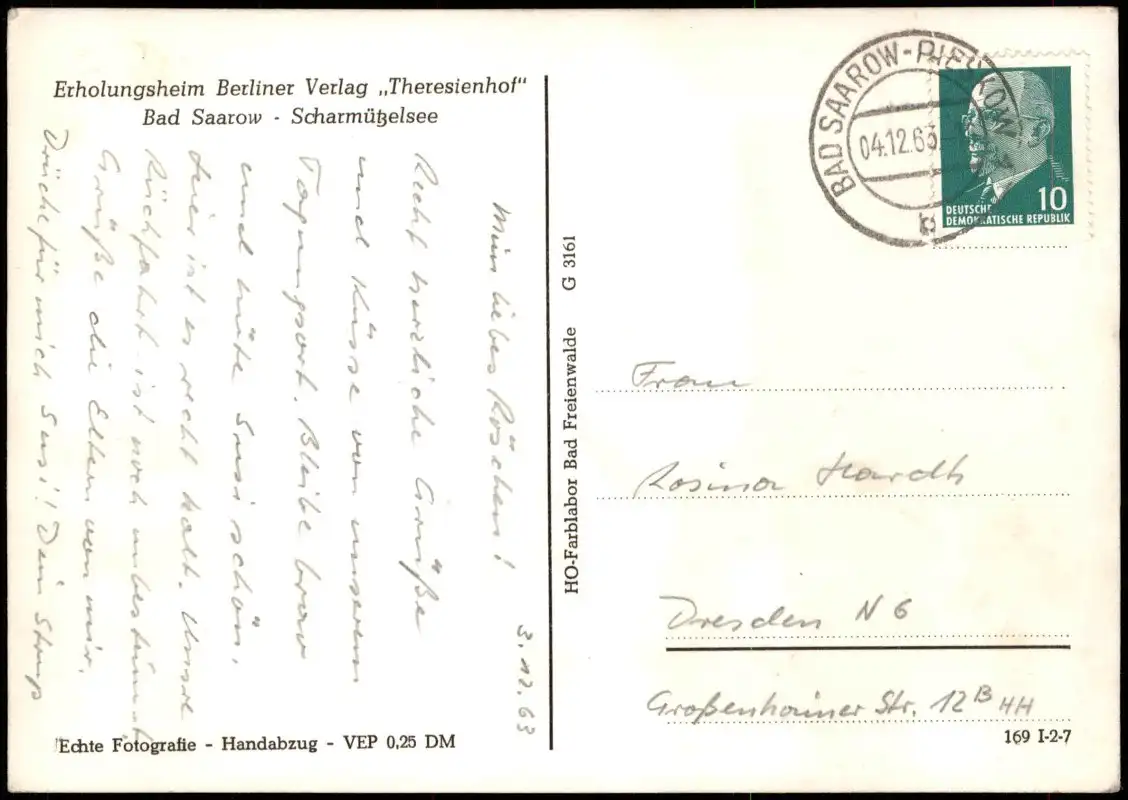 Erholungsheim Berliner Verlag „Theresienhof"
Bad Saarow - Scharmützelsee
3.12.63
Mein liebes Röschen!
Recht herzliche Grüße
und Küsse von unserem
Tagungsort. Bleibe brav
und hüte Susi schön.
Hier ist es recht kalt. Unsere
Rückfahrt ist noch unbestimmt
Grüße die Eltern von mir.
Drücke für mich Susi! Dein
Echte Fotografie - Handabzug - VEP 0,25 DM
HO-Farblabor Bad Freienwalde G 3161
BAD SAAROW-PIESKOW
04.12.63
b
10
DEUTSCHE
DEMOKRATISCHE REPUBLIK
Frau
Rosina Hardth
Dresden N 6
Großenhainer Str. 12B HH
169 I-2-7